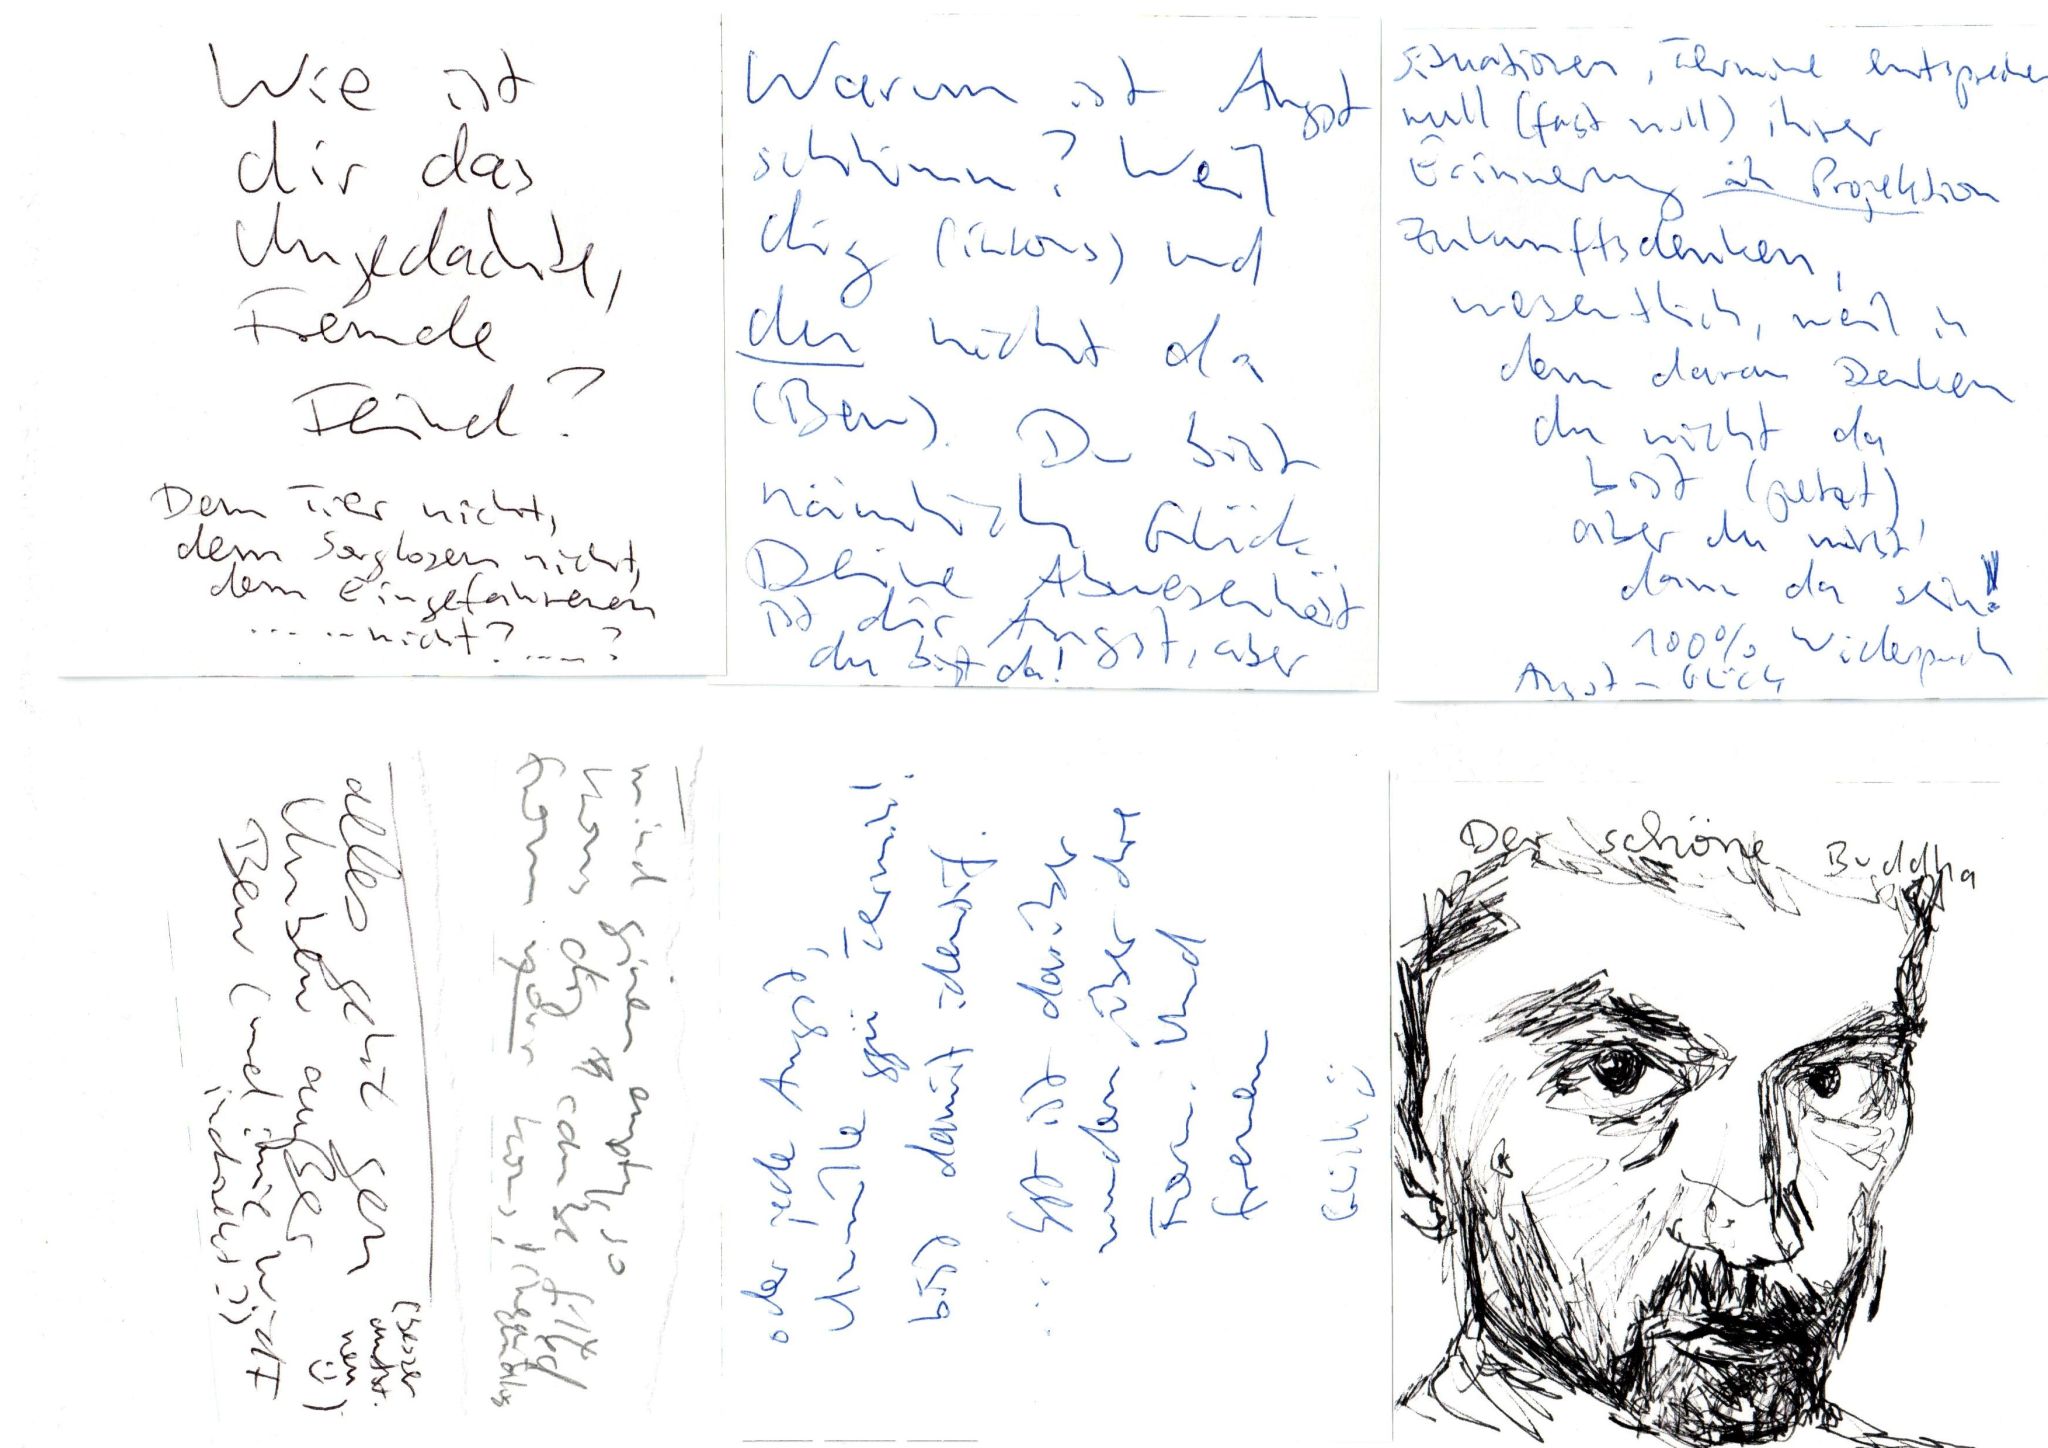 Wie ist
dir das
Ungedachte,
Fremde
Feind?
Dem Tier nicht,
dem Sorglosen nicht,
dem Eingefahrenen
..... nicht? ....?
Warum ist Angst
schlimm? Weil
ding (inkons) und
du nicht da
(Ben). Du bist
nämlich Glück
Deine Abwesenheit
ist dir Angst, aber
du bist da!
Situationen, Termine entsprechen
null (fast null) ihrer
Erinnerung in Projektion
Zukunftsdenken,
wesentlich, weil in
dem daran Denken
du nicht da
bist (jetzt)
aber du wirst
dann da sein!
100% Widerspruch
Angst - Glück
alles geht gen
Unben außer
Ben (und ihm nicht
(besser
nen :-)
mind given empty, so
kons ding
from kons,
oder jede Angst,
Unmille Termin!
bist damit identisch.
... ist darüber
wundern über die
Form. Und
freuen
Glück :)
Der schöne Buddha